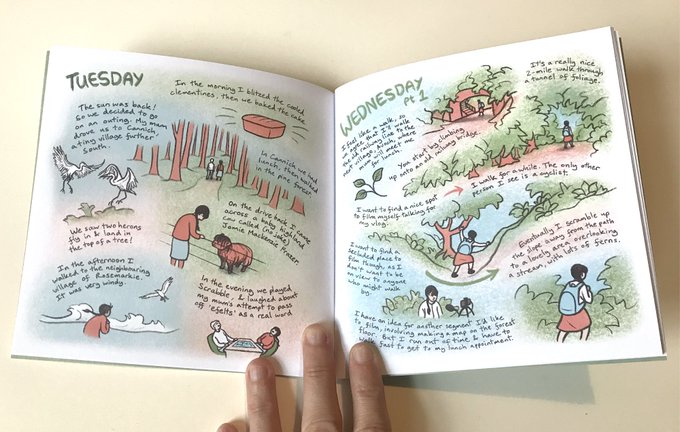 TUESDAY
In the morning I blitzed the cooled
clementines, then we baked the cake
The sun was back!
So we decided to go
on an outing. My mum
drove us to Cannich,
a tiny village further
South.
In Cannich we had
lunch, then walked
in the pine forest
We saw two herons
fly in & land in
the top of a tree!
On the drive back I came
across a baby Highland
cow called (no joke)
Jamie Mackenzie Frazer.
In the afternoon I
walked to the neighbouring
village of Rosemarkie.
It was very windy.
In the evening we played
Scrabble, & laughed about
my mum's attempt to pass
off 'efelts' as a real word
WEDNESDAY
Pt 1
I feel like a walk, so
we agree that I'll walk
the old railway line to the
next village, which is where
mum will meet me
for lunch.
It's a really nice
2-mile walk through
a tunnel of foliage.
You start by climbing
up onto an old railway bridge.
I walk for a while. The only other
person I see is a cyclist.
I want to find a nice spot
to film myself talking for
my vlog.
I want to find a
secluded place to
film though, as I
don't want to be
on view to anyone
who might walk
by.
Eventually I scramble up
the slope away from the path
to a lovely area overlooking
a stream, with lots of ferns.
I have an idea for another segment I'd like
to film, involving making a map on the forest
floor. But I run out of time & have to
walk fast to get to my lunch appointment.